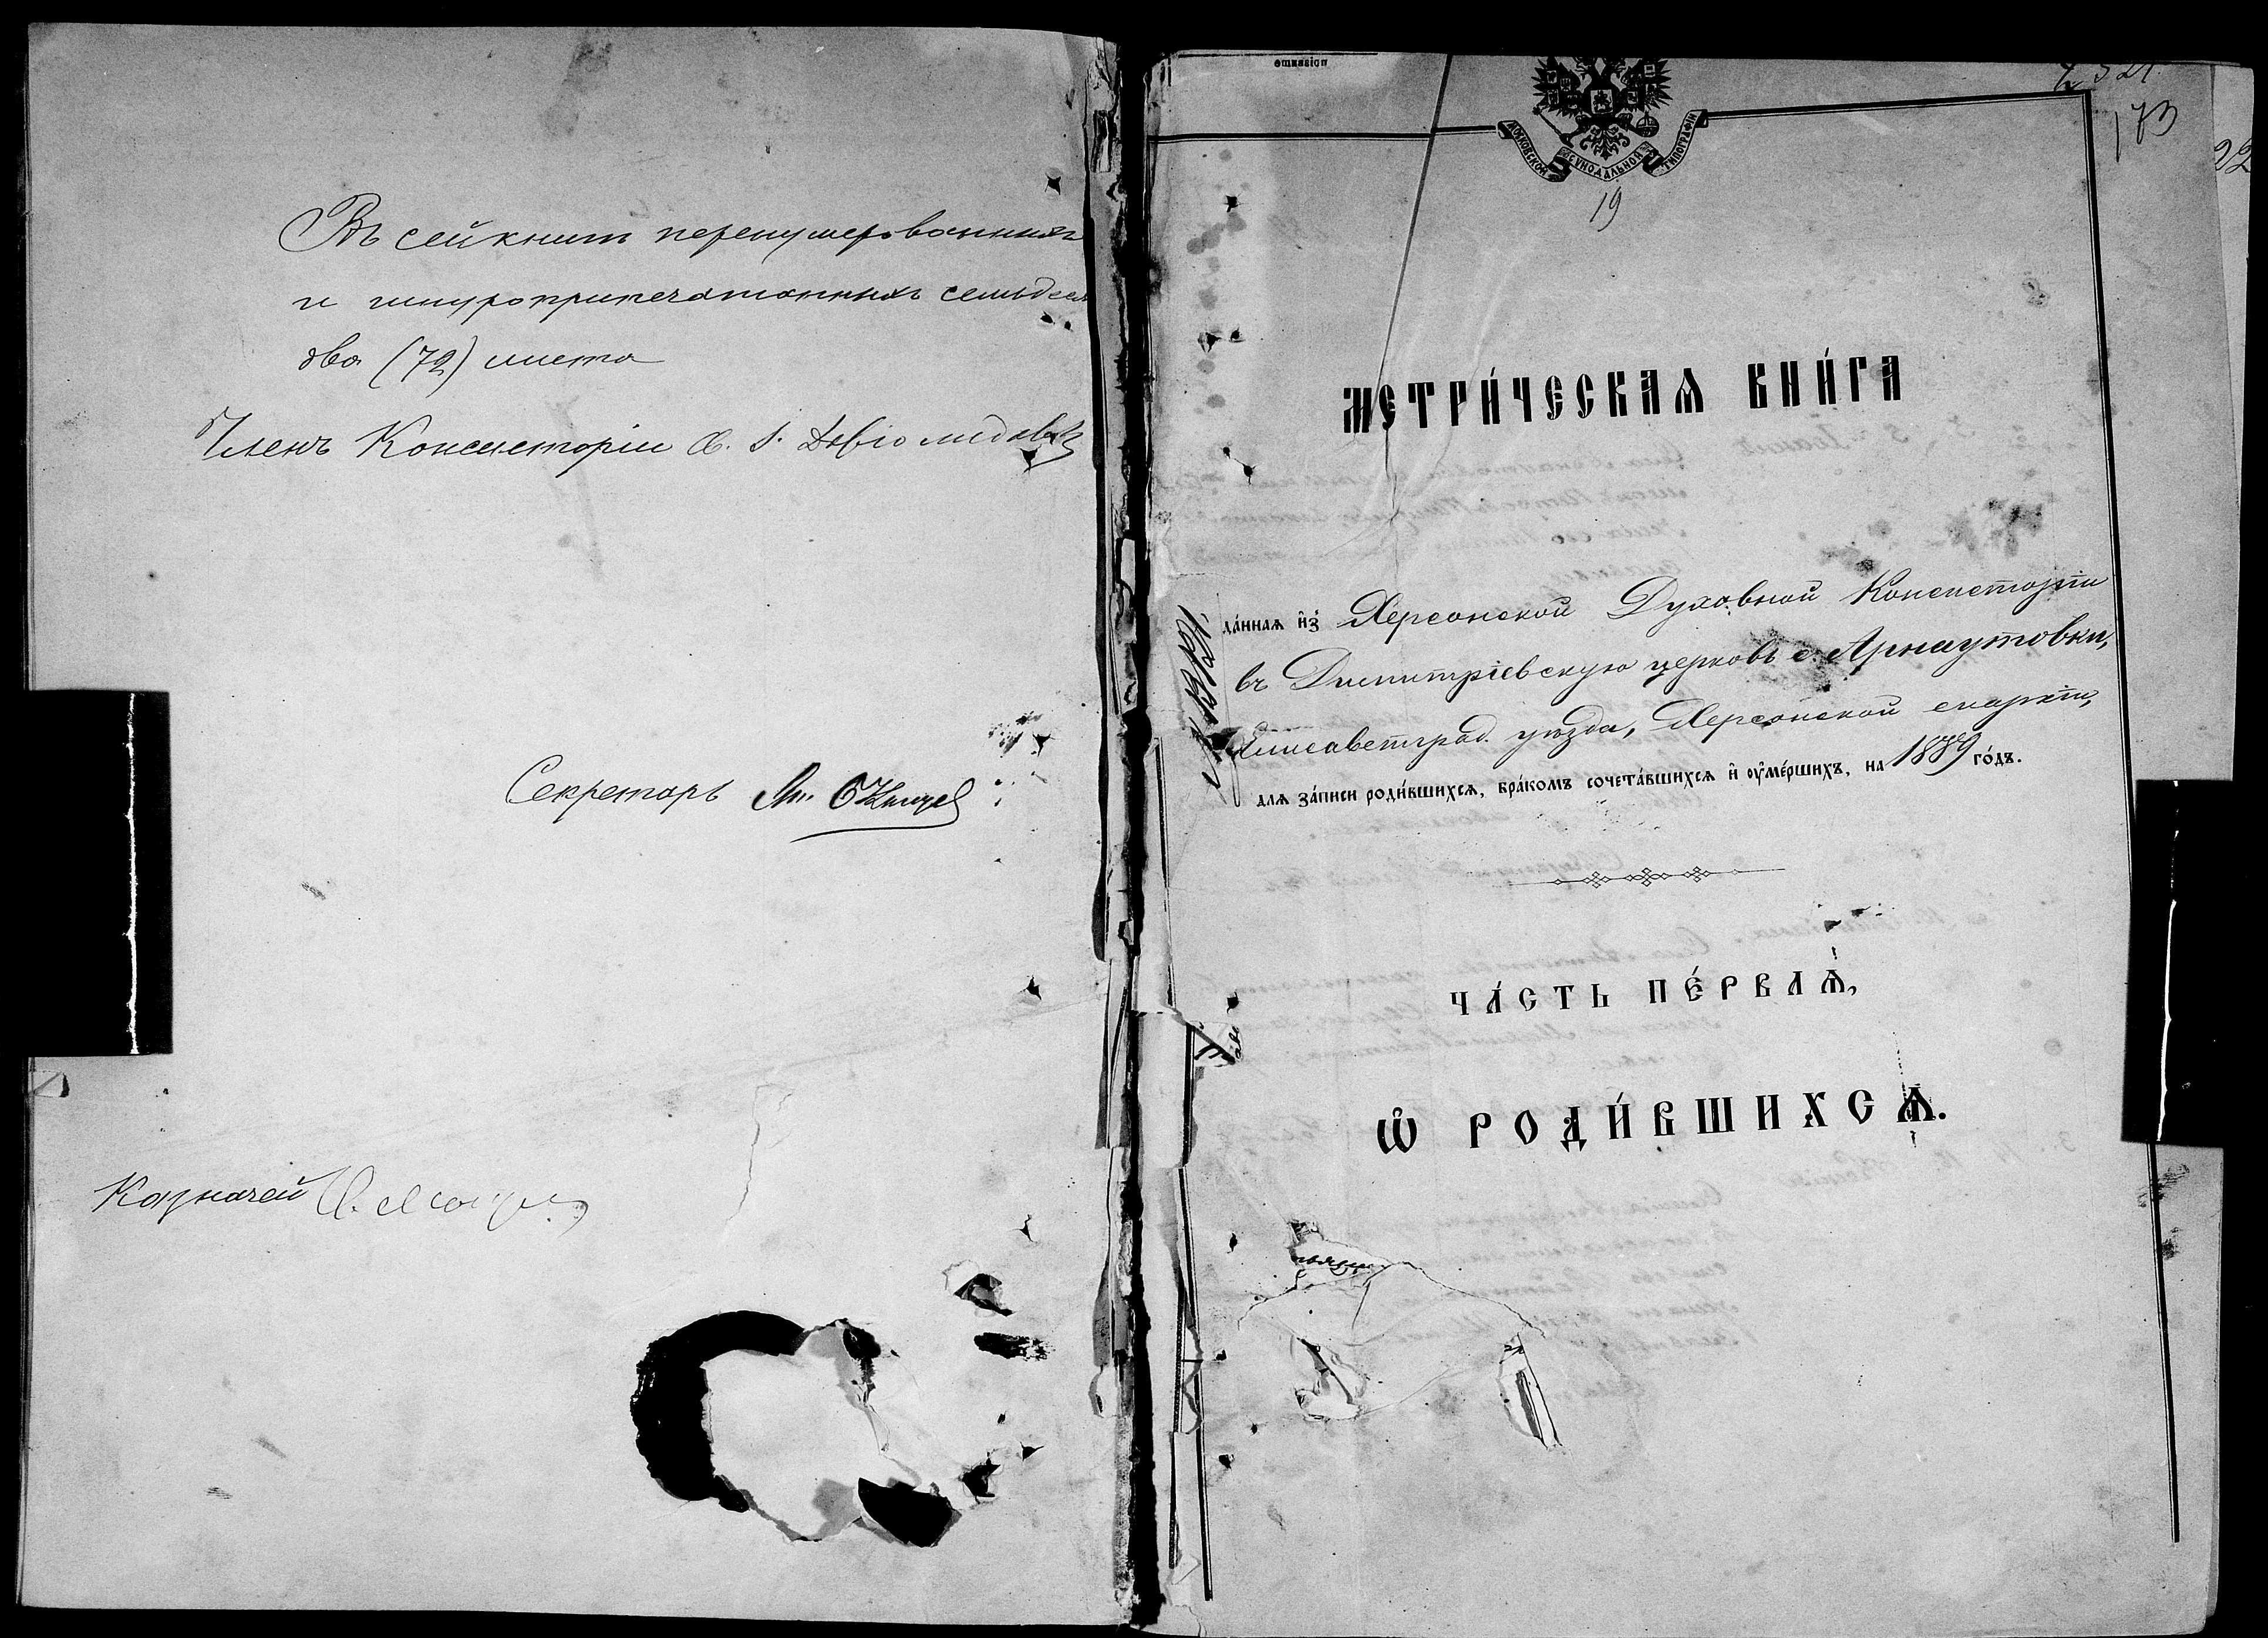 Въ сей книгѣ перенумерованныхъ
и шнуроприпечатанныхъ семьдес
два (72) листа
Членъ Консисторіи
Секретарь
Казначей
173
22
МОСКОВСКОЙ СѴНОДАЛЬНОЙ ТИПОГРАФІИ
19
МЕТРИ́ЧЕСКАѦ КНИ́ГА
да́ннаѧ и҆з̾ Херсонской Духовной Консисторіи
въ Димитріевскую церковь с. Арнаутовки,
Елисаветград. уѣзда, Херсонской епархіи,
длѧ за́писи роди́вшихсѧ, бра́комъ сочета́вшихсѧ и҆ ᲂу҆ме́ршихъ, на 1889 го́дъ.
ЧА́СТЬ ПЕ́РВАѦ,
Ѽ РОДИ́ВШИХСѦ.